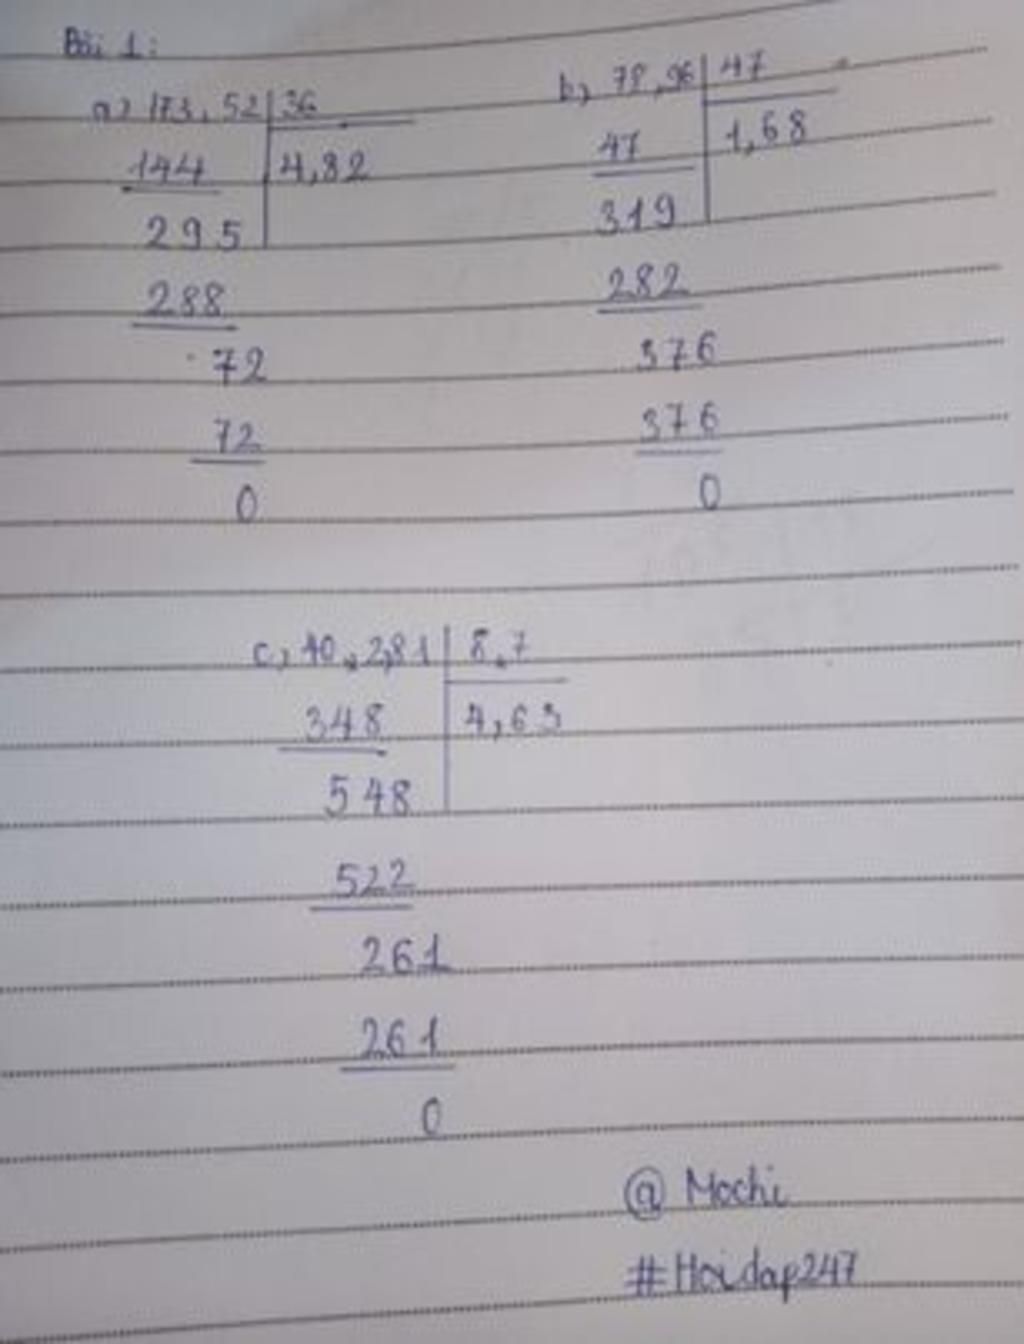 Bài 1:
a) 173,52 36
144 4,82
295
288
72
72
0
b) 78,96 47
47 1,68
319
282
376
376
0
c) 40,2,81 8,7
348 4,63
548
522
261
261
0
@ Mochi
#Hoidap247